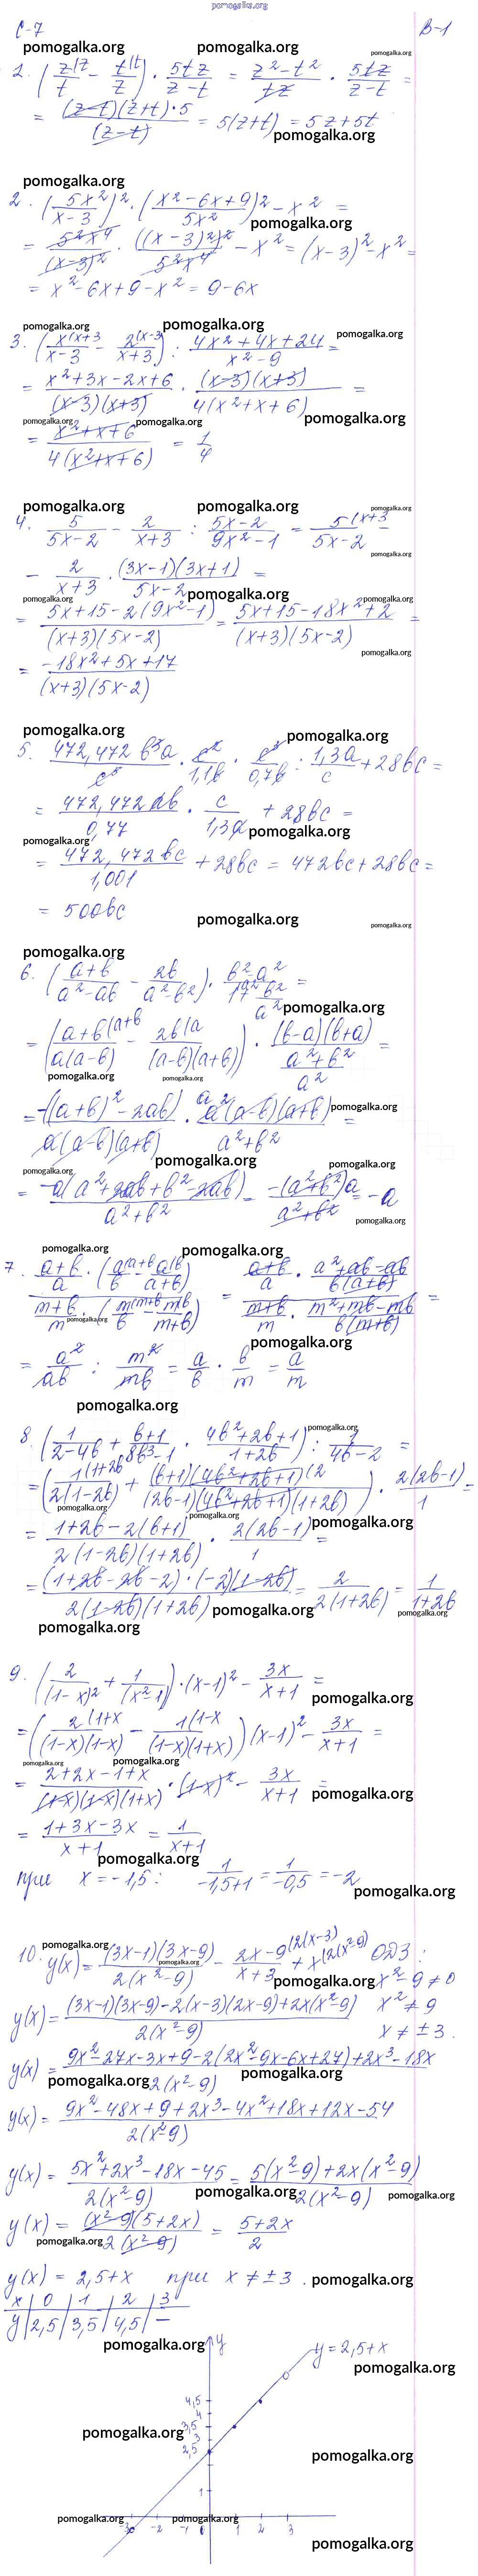 pomogalka.org
С-7 В-1
pomogalka.org pomogalka.org pomogalka.org
1. (z(z/t - t(t/z) · 5tz/(z-t) = (z²-t²)/(tz) · 5tz/(z-t) =
= (z-t)(z+t)·5/(z-t) = 5(z+t) = 5z+5t
pomogalka.org
pomogalka.org
2. (5x²/(x-3))² · ((x²-6x+9)/(5x²))² - x² =
pomogalka.org
= 5²x⁴/(x-3)² · ((x-3)²)²/(5²x⁴) - x² = (x-3)²-x² =
= x²-6x+9-x² = 9-6x
pomogalka.org pomogalka.org pomogalka.org
3. (x(x+3/(x-3) - 2(x-3/(x+3)) : (4x²+4x+24)/(x²-9) =
= (x²+3x-2x+6)/((x-3)(x+3)) · (x-3)(x+3)/(4(x²+x+6)) =
pomogalka.org pomogalka.org pomogalka.org
= (x²+x+6)/(4(x²+x+6)) = 1/4
pomogalka.org pomogalka.org pomogalka.org
4. 5/(5x-2) - 2/(x+3) : (5x-2)/(9x²-1) = 5(x+3/(5x-2) -
pomogalka.org
- 2/(x+3) · (3x-1)(3x+1)/(5x-2) =
pomogalka.org pomogalka.org pomogalka.org
= (5x+15-2(9x²-1))/((x+3)(5x-2)) = (5x+15-18x²+2)/((x+3)(5x-2)) =
pomogalka.org
= (-18x²+5x+17)/((x+3)(5x-2))
pomogalka.org pomogalka.org
5. 472,472b³a/c³ · c²/1,1b · c³/0,7b : 1,3a/c + 28bc =
= 472,472ab/0,77 · c/1,3a + 28bc =
pomogalka.org
pomogalka.org
= 472,472bc/1,001 + 28bc = 472bc+28bc =
= 500bc
pomogalka.org pomogalka.org
pomogalka.org
6. ((a+b)/(a²-ab) - 2b/(a²-b²)) · (b²-a²)/(1+b²/a²) =
pomogalka.org
= ((a+b(a+b)/(a(a-b)) - 2b(a/((a-b)(a+b))) · (b-a)(b+a)/((a²+b²)/a²) =
pomogalka.org pomogalka.org
= -((a+b)²-2ab)/(a(a-b)(a+b)) · a²(a-b)(a+b)/(a²+b²) =
pomogalka.org
pomogalka.org pomogalka.org pomogalka.org
= -a(a²+2ab+b²-2ab)/(a²+b²) = -(a²+b²)a/(a²+b²) = -a
pomogalka.org
pomogalka.org pomogalka.org
7. ((a+b)/a · (a(a+b/b - a(b/(a+b)))/((m+b)/m · (m(m+b/b - m(b/(m+b))) = ((a+b)/a · (a²+ab-ab)/(b(a+b)))/((m+b)/m · (m²+mb-mb)/(b(m+b))) =
pomogalka.org
pomogalka.org
= a²/ab : m²/mb = a/b · b/m = a/m
pomogalka.org
8. (1/(2-4b) + (b+1)/(8b³-1) · (4b²+2b+1)/(1+2b)) : 1/(4b-2) =
pomogalka.org
= (1(1+2b/(2(1-2b)) + (b+1)(4b²+2b+1)(2/((2b-1)(4b²+2b+1)(1+2b))) · 2(2b-1)/1 =
pomogalka.org pomogalka.org
pomogalka.org
= (1+2b-2(b+1))/(2(1-2b)(1+2b)) · 2(2b-1)/1 =
= (1+2b-2b-2)·(-2)(1-2b)/(2(1-2b)(1+2b)) = 2/(2(1+2b)) = 1/(1+2b)
pomogalka.org pomogalka.org
pomogalka.org
9. (2/(1-x)² + 1/(x²-1)) · (x-1)² - 3x/(x+1) =
pomogalka.org
= (2(1+x/((1-x)(1-x)) - 1(1-x/((1-x)(1+x))) (x-1)² - 3x/(x+1) =
pomogalka.org pomogalka.org
= (2+2x-1+x)/((1-x)(1-x)(1+x)) · (1-x)² - 3x/(x+1) =
pomogalka.org
= (1+3x-3x)/(x+1) = 1/(x+1)
pomogalka.org
при x = -1,5: 1/(-1,5+1) = 1/(-0,5) = -2
pomogalka.org
pomogalka.org
10. y(x) = (3x-1)(3x-9)/(2(x²-9)) - (2x-9(2(x-3)/(x+3) + x(2(x²-9) ОДЗ:
pomogalka.org pomogalka.org
x²-9≠0
y(x) = ((3x-1)(3x-9)-2(x-3)(2x-9)+2x(x²-9))/(2(x²-9)) x²≠9
x≠±3.
y(x) = (9x²-27x-3x+9-2(2x²-9x-6x+27)+2x³-18x)/(2(x²-9))
pomogalka.org pomogalka.org
y(x) = (9x²-48x+9+2x³-4x²+18x+12x-54)/(2(x²-9))
y(x) = (5x²+2x³-18x-45)/(2(x²-9)) = (5(x²-9)+2x(x²-9))/(2(x²-9))
pomogalka.org pomogalka.org
y(x) = (x²-9)(5+2x)/(2(x²-9)) = (5+2x)/2
pomogalka.org
y(x) = 2,5+x при x≠±3.
pomogalka.org
x | 0 | 1 | 2 | 3
y | 2,5 | 3,5 | 4,5 | —
pomogalka.org y
y=2,5+x
pomogalka.org
4,5
4
3,5
pomogalka.org
3
2,5
pomogalka.org
1
pomogalka.org pomogalka.org
-3 -2 -1 0 1 2 3
pomogalka.org